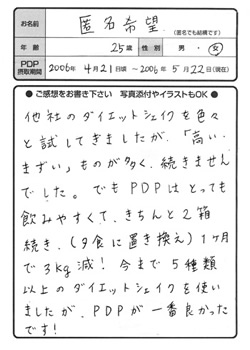 お名前 匿名希望. (匿名でも結構です)
年齢 25歳 性別 男・女
PDP摂取期間 2006年4月21日頃〜2006年5月22日(現在)
●ご感想をお書き下さい 写真添付やイラストもOK●
他社のダイエットシェイクを色々
と試してきましたが、「高い、
まずい」ものが多く、続きません
でした。でもPDPはとっても
飲みやすくて、きちんと2箱
続き、(夕食に置き換え)1ヶ月
で3kg減!今まで5種類
以上のダイエットシェイクを使い
ましたが、PDPが一番良かった
です!